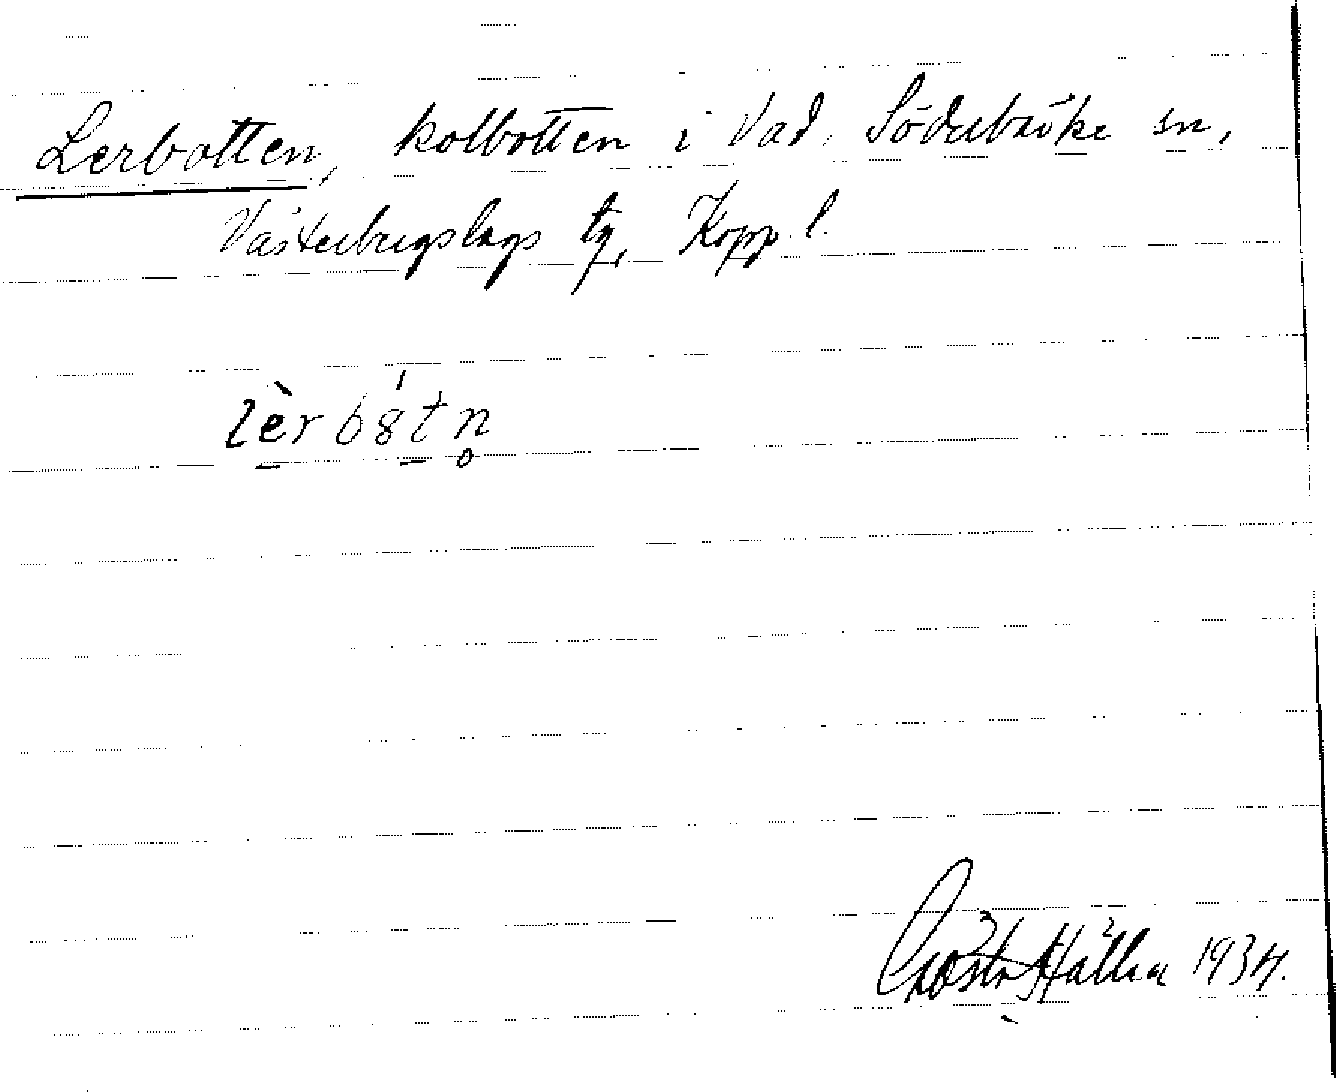 Lerbotten, kolbotten i Vad, Söderbärke sn,
Västerbergslags tg, Kopp. l.
lèrbŏ́tn̥
Gösta Hallén 1934.